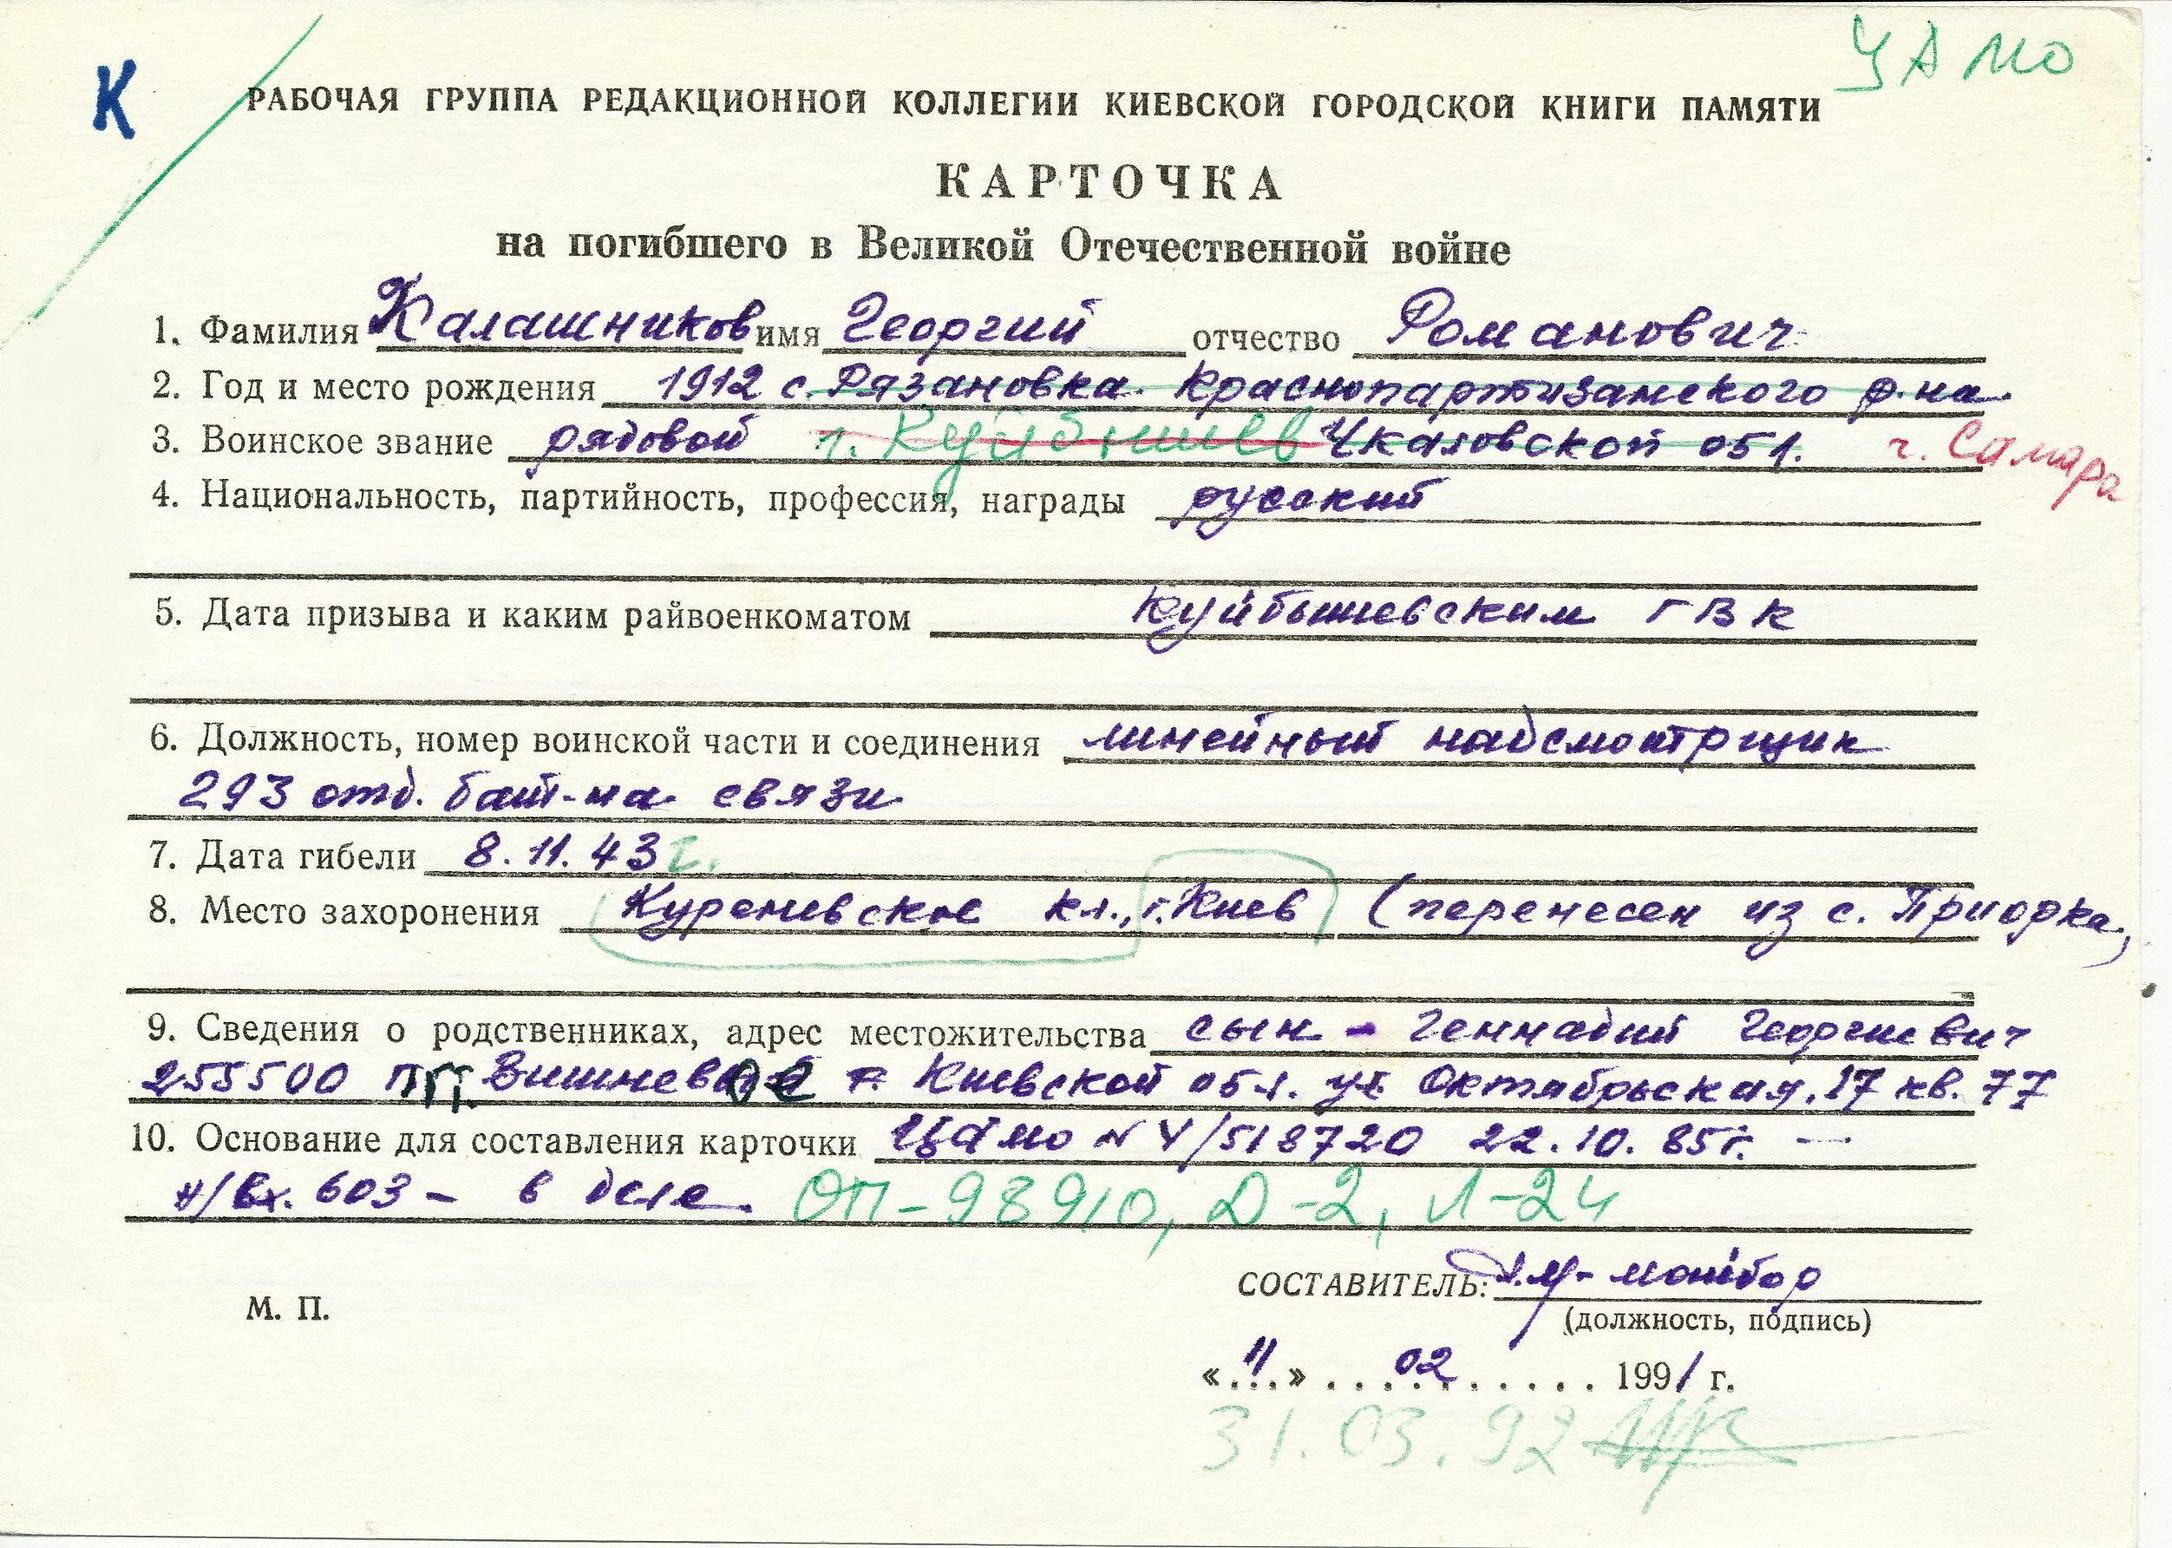 ЦАМО
К
РАБОЧАЯ ГРУППА РЕДАКЦИОННОЙ КОЛЛЕГИИ КИЕВСКОЙ ГОРОДСКОЙ КНИГИ ПАМЯТИ
КАРТОЧКА
на погибшего в Великой Отечественной войне
1. Фамилия Калашников имя Георгий отчество Романович
2. Год и место рождения 1912 с. Рязановка Краснопартизанского р-на
3. Воинское звание рядовой г. Куйбышев Чкаловской обл. г. Самара
4. Национальность, партийность, профессия, награды русский
5. Дата призыва и каким райвоенкоматом Куйбышевским ГВК
6. Должность, номер воинской части и соединения линейный надсмотрщик
293 отд. бат-на связи
7. Дата гибели 8.11.43 г.
8. Место захоронения Куреневское кл., г. Киев (перенесен из с. Приорка)
9. Сведения о родственниках, адрес местожительства сын - Геннадий Георгиевич
255500 пгт. Вишневое Киевской обл. ул. Октябрьская, 17 кв. 77
10. Основание для составления карточки ЦАМО N 4/518720 22.10.85г. —
н/вх. 603 - в деле. ОП-98910, Д-2, Л-24
СОСТАВИТЕЛЬ:
(должность, подпись)
М. П.
«11» 02 1991 г.
31.03.92